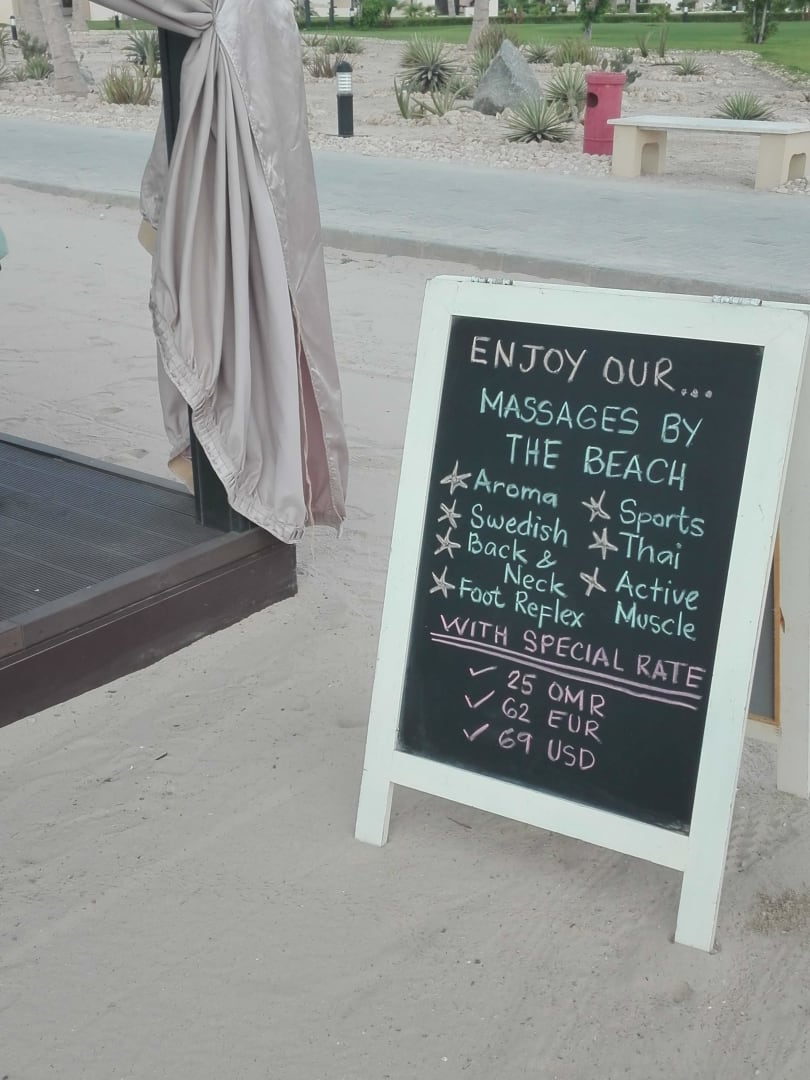 ENJOY OUR...
MASSAGES BY
THE BEACH
Aroma
Swedish
Back &
Neck
Foot Reflex
Sports
Thai
Active
Muscle
WITH SPECIAL RATE
25 OMR
62 EUR
69 USD